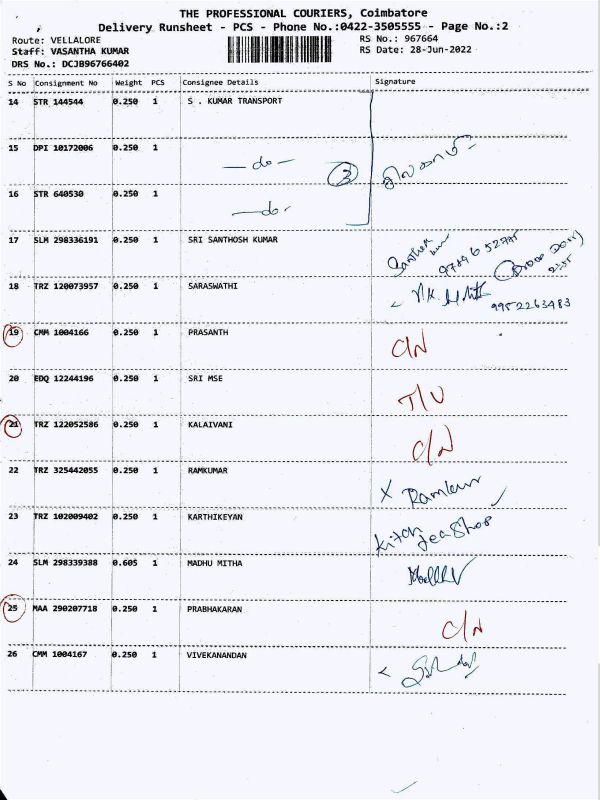 THE PROFESSIONAL COURIERS, Coimbatore
Delivery Runsheet - PCS - Phone No.:0422-3505555 - Page No.:2
Route: VELLALORE RS No.: 967664
Staff: VASANTHA KUMAR RS Date: 28-Jun-2022
DRS No.: DCJB96766402
S No Consignment No Weight PCS Consignee Details Signature
14 STR 144544 0.250 1 S . KUMAR TRANSPORT
15 DPI 10172006 0.250 1 — do — 3
16 STR 640530 0.250 1 — do -
17 SLM 298336191 0.250 1 SRI SANTHOSH KUMAR
18 TRZ 120073957 0.250 1 SARASWATHI 9952263483
19 CMM 1004166 0.250 1 PRASANTH C/N
20 EDQ 12244196 0.250 1 SRI MSE T/U
21 TRZ 122052586 0.250 1 KALAIVANI C/N
22 TRZ 325442055 0.250 1 RAMKUMAR X Ramkumar
23 TRZ 102009402 0.250 1 KARTHIKEYAN
24 SLM 298339388 0.605 1 MADHU MITHA
25 MAA 290207718 0.250 1 PRABHAKARAN C/N
26 CMM 1004167 0.250 1 VIVEKANANDAN